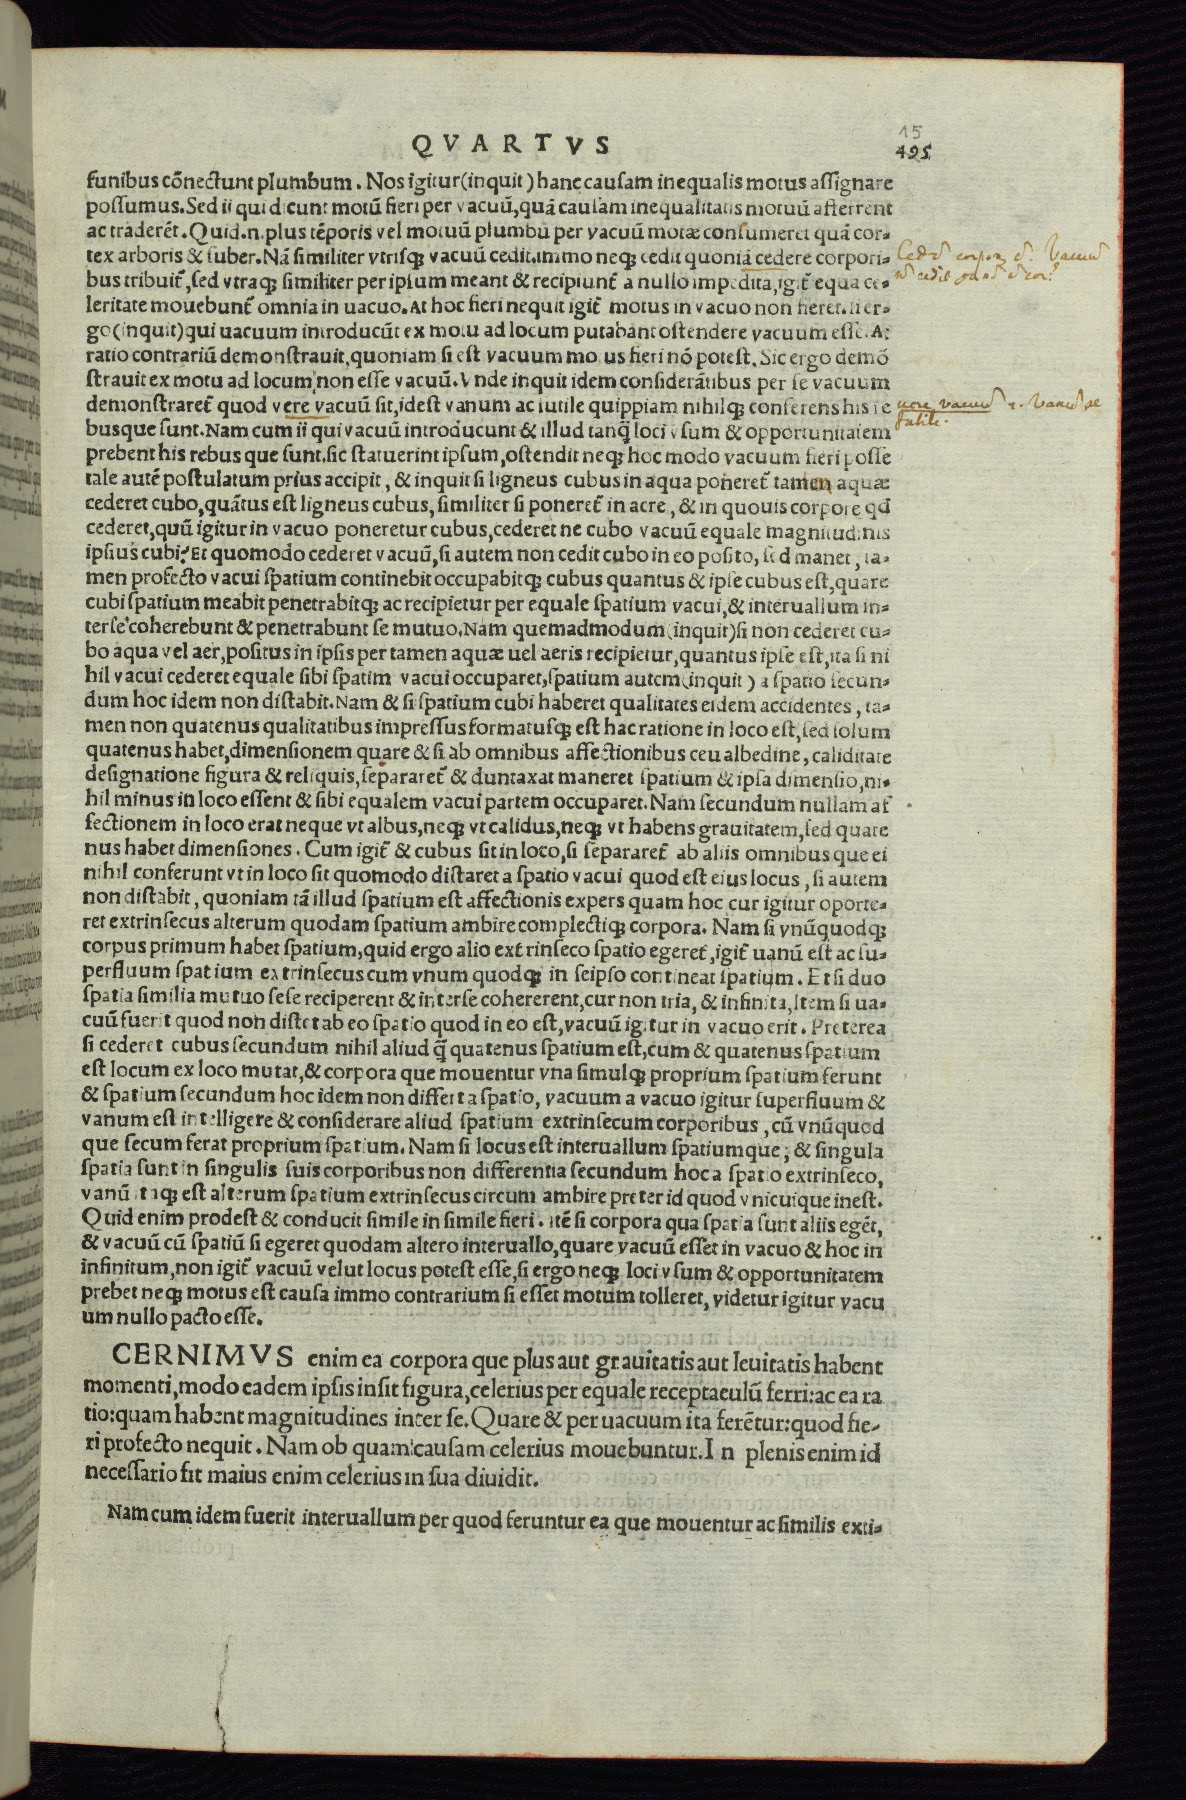 QVARTVS
15
495
funibus cōnectunt plumbum. Nos igitur(inquit) hanc causam inequalis motus assignare
possumus. Sed ii qui dicunt motū fieri per vacuū, quā causam inequalitatis motuū afferrent
ac traderēt. Quid.n. plus tēporis vel motuū plumbū per vacuū motæ consumeret quā cor-
tex arboris & suber. Nā similiter vtrisq; vacuū cedit, immo neq; cedit quoniā cedere corpori-
bus tribuit̃, sed vtraq; similiter per ipsum meant & recipiunt̃ a nullo impedita, igit̃ equa ce-
leritate mouebunt̃ omnia in uacuo. At hoc fieri nequit igit̃ motus in vacuo non fieret. Iter-
go(inquit)qui vacuum introducūt ex motu ad locum putabant ostendere vacuum esse. At
ratio contrariū demonstrauit, quoniam si est vacuum motus fieri nō potest. Sic ergo demō
strauit ex motu ad locum non esse vacuū. Vnde inquit idem considerātibus per se vacuum
demonstraret̃ quod vere vacuū sit, idest vanum ac iutile quippiam nihilq; conferens his re
busque sunt. Nam cum ii qui vacuū introducunt & illud tanq̃ loci vsum & opportunitatem
prebent his rebus que sunt. sic statuerint ipsum, ostendit neq; hoc modo vacuum fieri posse
tale autē postulatum prius accipit, & inquit si ligneus cubus in aqua poneret̃ tamen aquæ
cederet cubo, quātus est ligneus cubus, similiter si poneret̃ in aere, & in quouis corpore qd̄
cederet, quū igitur in vacuo poneretur cubus, cederet ne cubo vacuū equale magnitudinis
ipsius cubi? Et quomodo cederet vacuū, si autem non cedit cubo in eo posito, sed manet, ta-
men profecto vacui spatium continebit occupabitq; cubus quantus & ipse cubus est, quare
cubi spatium meabit penetrabitq; ac recipietur per equale spatium vacui, & interuallum in-
ter se coherebunt & penetrabunt se mutuo. Nam quemadmodum (inquit)si non cederet cu-
bo aqua vel aer, positus in ipsis per tamen aquæ uel aeris recipietur, quantus ipse est, ita si ni
hil vacui cederet equale sibi spatim vacui occuparet, spatium autem(inquit) a spatio secun-
dum hoc idem non distabit. Nam & si spatium cubi haberet qualitates eidem accidentes, ta-
men non quatenus qualitatibus impressus formatusq; est hac ratione in loco est, sed solum
quatenus habet, dimensionem quare & si ab omnibus affectionibus ceu albedine, caliditate
designatione figura & reliquis, separaret̃ & duntaxat maneret spatium & ipsa dimensio, ni-
hil minus in loco essent & sibi equalem vacui partem occuparet. Nam secundum nullam af
fectionem in loco erat neque vt albus, neq; vt calidus, neq; vt habens grauitatem, sed quate
nus habet dimensiones. Cum igit̃ & cubus sit in loco, si separaret̃ ab aliis omnibus que ei
nihil conferunt vt in loco sit quomodo distaret a spatio vacui quod est eius locus, si autem
non distabit, quoniam tā illud spatium est affectionis expers quam hoc cur igitur oporte-
ret extrinsecus alterum quodam spatium ambire complectiq; corpora. Nam si vnūquodq;
corpus primum habet spatium, quid ergo alio extrinseco spatio egeret̃, igit̃ uanū est ac su-
perfluum spatium extrinsecus cum vnum quodq; in seipso contineat spatium. Et si duo
spatia similia mutuo sese reciperent & inter se cohererent, cur non tria, & infinita, Item si ua-
cuū fuerit quod non distet ab eo spatio quod in eo est, vacuū igitur in vacuo erit. Preterea
si cederet cubus secundum nihil aliud q̃ quatenus spatium est, cum & quatenus spatium
est locum ex loco mutat, & corpora que mouentur vna simulq; proprium spatium ferunt
& spatium secundum hoc idem non differt a spatio, vacuum a vacuo igitur superfluum &
vanum est intelligere & considerare aliud spatium extrinsecum corporibus, cū vnūquod
que secum ferat proprium spatium. Nam si locus est interuallum spatiumque; & singula
spatia sunt in singulis suis corporibus non differentia secundum hoc a spatio extrinseco,
vanū itaq; est alterum spatium extrinsecus circum ambire preter id quod vnicuique inest.
Quid enim prodest & conducit simile in simile fieri. itē si corpora qua spatia sunt aliis egēt,
& vacuū cū spatiū si egeret quodam altero interuallo, quare vacuū esset in vacuo & hoc in
infinitum, non igit̃ vacuū velut locus potest esse, si ergo neq; loci vsum & opportunitatem
prebet neq; motus est causa immo contrarium si esset motum tolleret, videtur igitur vacu
um nullo pacto esse.
CERNIMVS enim ea corpora que plus aut grauitatis aut leuitatis habent
momenti, modo eadem ipsis insit figura, celerius per equale receptaculū ferri: ac ea ra
tio: quam habent magnitudines inter se. Quare & per uacuum ita ferētur: quod fie-
ri profecto nequit. Nam ob quam causam celerius mouebuntur. In plenis enim id
necessario fit maius enim celerius in sua diuidit.
Nam cum idem fuerit interuallum per quod feruntur ea que mouentur ac similis exti-
vere vacuū
futile.